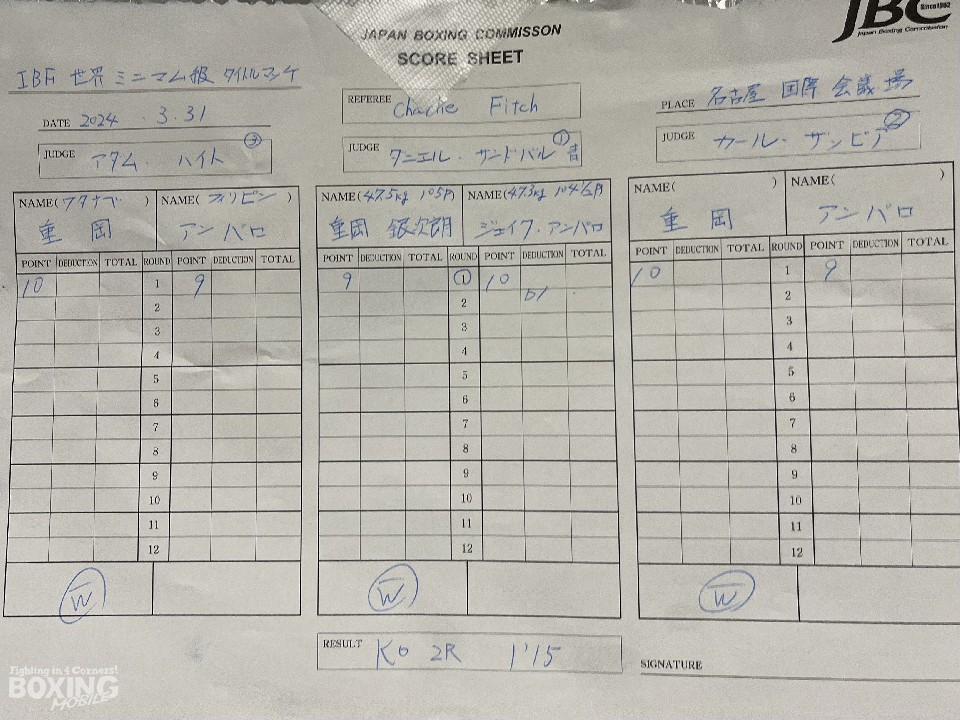 JBC
Since1952
Japan Boxing Commission
JAPAN BOXING COMMISSON
SCORE SHEET
IBF 世界 ミニマム級 タイトルマッチ
DATE 2024 . 3.31
REFEREE Charlie Fitch
PLACE 名古屋 国際 会議 場
JUDGE アダム・ハイト ③
JUDGE ダニエル・サンドバル ①
JUDGE カール・ザンビア ②
NAME(ワタナベ ) NAME(フィリピン )
重岡 アンパロ
NAME(47.5kg 105P) NAME(47.3kg 104 1/2P
重岡 銀次朗 ジェイク・アンパロ
NAME( ) NAME( )
重岡 アンパロ
POINT DEDUCTION TOTAL ROUND POINT DEDUCTION TOTAL
10 1 9
2
3
4
5
6
7
8
9
10
11
12
W
POINT DEDUCTION TOTAL ROUND POINT DEDUCTION TOTAL
9 ① 10
2
3
4
5
6
7
8
9
10
11
12
W
POINT DEDUCTION TOTAL ROUND POINT DEDUCTION TOTAL
10 1 9
2
3
4
5
6
7
8
9
10
11
12
W
RESULT KO 2R 1'15
SIGNATURE
Fighting in 4 Corners!
BOXING
MOBILE